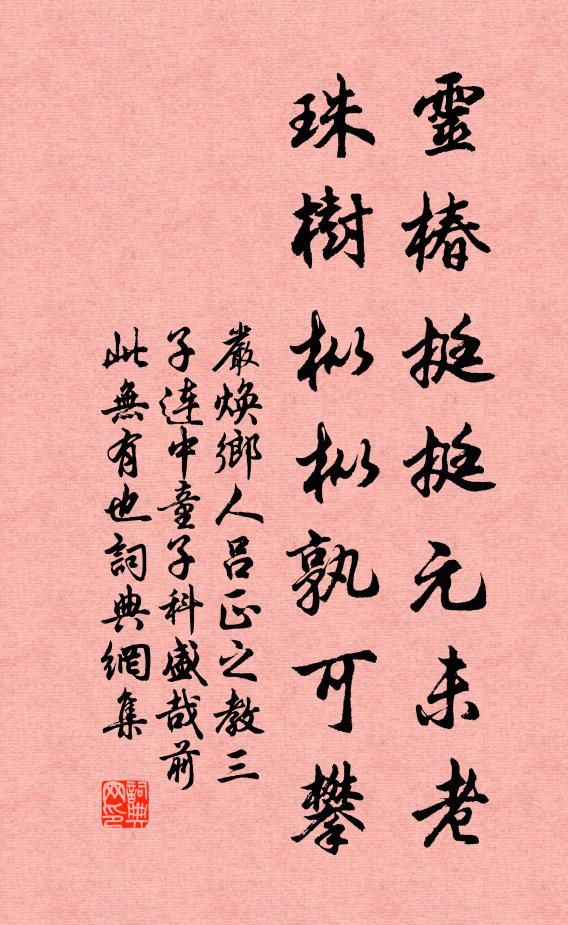 靈椿挺挺元未老
珠樹樅樅孰可攀
嚴煥鄉人呂正之教三
子連中童子科盛哉前
此無有也詞典網集
詞典
网印